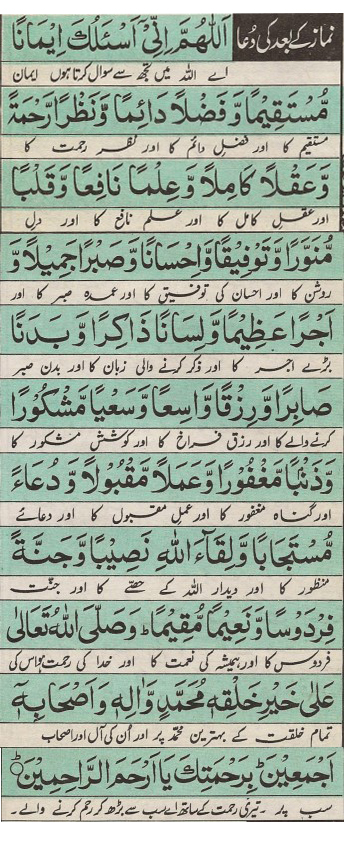 نماز کے بعد کی دُعا
اَللّٰهُمَّ اِنِّیْۤ اَسْئَلُكَ اِیْمَانًا
اے اللہ میں تجھ سے سوال کرتا ہوں ایمان
مُّسْتَقِیْمًا وَّفَضْلًا دَائِمًا وَّنَظْرًا رَّحْمَةً
مستقیم کا اور فضل دائم کا اور نظر رحمت کا
وَّعَقْلًا كَامِلًا وَّعِلْمًا نَافِعًا وَّقَلْبًا
اور عقل کامل کا اور علم نافع کا اور دل
مُّنَوَّرًا وَّتَوْفِیْقًا وَّاِحْسَانًا وَّصَبْرًا جَمِیْلًا وَّ
روشن کا اور احسان کی توفیق کا اور عمدہ صبر کا اور
اَجْرًا عَظِیْمًا وَّلِسَانًا ذَاكِرًا وَّبَدَنًا
بڑے اجر کا اور ذکر کرنے والی زبان کا اور بدن صبر
صَابِرًا وَّرِزْقًا وَّاسِعًا وَّسَعْیًا مَّشْكُوْرًا
کرنے والے کا اور رزق فراخ کا اور کوشش مشکور کا
وَّذَنْۢبًا مَّغْفُوْرًا وَّعَمَلًا مَّقْبُوْلًا وَّدُعَاءً
اور گناہ مغفور کا اور عمل مقبول کا اور دعائے
مُّسْتَجَابًا وَّلِقَآءَ اللهِ نَصِیْبًا وَّجَنَّةً
منظور کا اور دیدار اللہ کے حصّے کا اور جنّت
فِرْدَوْسًا وَّنَعِیْمًا مُّقِیْمًا ط وَصَلَّی اللهُ تَعَالٰی
فردوس کا اور ہمیشہ کی نعمت کا اور خدا کی رحمت ہو اس کی
عَلٰی خَیْرِ خَلْقِهٖ مُحَمَّدٍ وَّاٰلِهٖ وَاَصْحَابِهٖ
تمام خلقت کے بہترین محمّد پر اور اُن کی آل اور اصحاب
اَجْمَعِیْنَ ط بِرَحْمَتِكَ یَا اَرْحَمَ الرَّاحِمِیْنَ
سب پر۔ تیری رحمت کے ساتھ اے سب سے بڑھ کر رحم کرنے والے۔